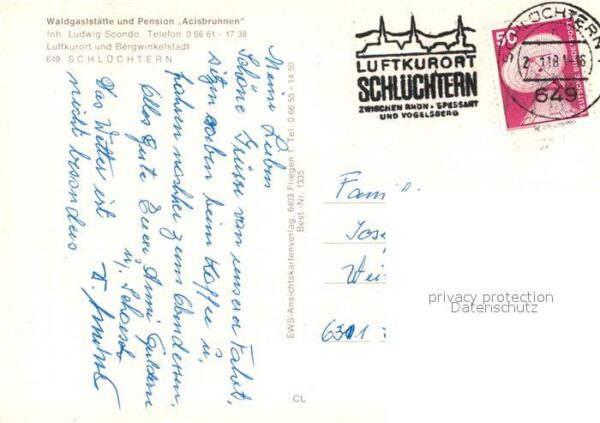 Waldgaststätte und Pension „Acisbrunnen"
Inh. Ludwig Scondo. Telefon 0 66 61 - 17 38
Luftkurort und Bergwinkelstadt
649 SCHLÜCHTERN
LUFTKURORT
SCHLÜCHTERN
ZWISCHEN RHÖN · SPESSART
UND VOGELSBERG
SCHLÜCHTERN
649
50
DEUTSCHE BUNDESPOST
Meine Lieben
Schöne Grüße von unserer Fahrt,
sitzen soeben beim Kaffee u,
fahren nachher zum Abendessen,
Alles Gute Euer
u,
Das Wetter ist
nicht besonders.
EWS-Ansichtskartenverlag, 6403 Flieden 1, Tel. 0 66 55 - 14 50
Best.-Nr. 1335
CL
Famil
Jose
Wei
6301
privacy protection
Datenschutz